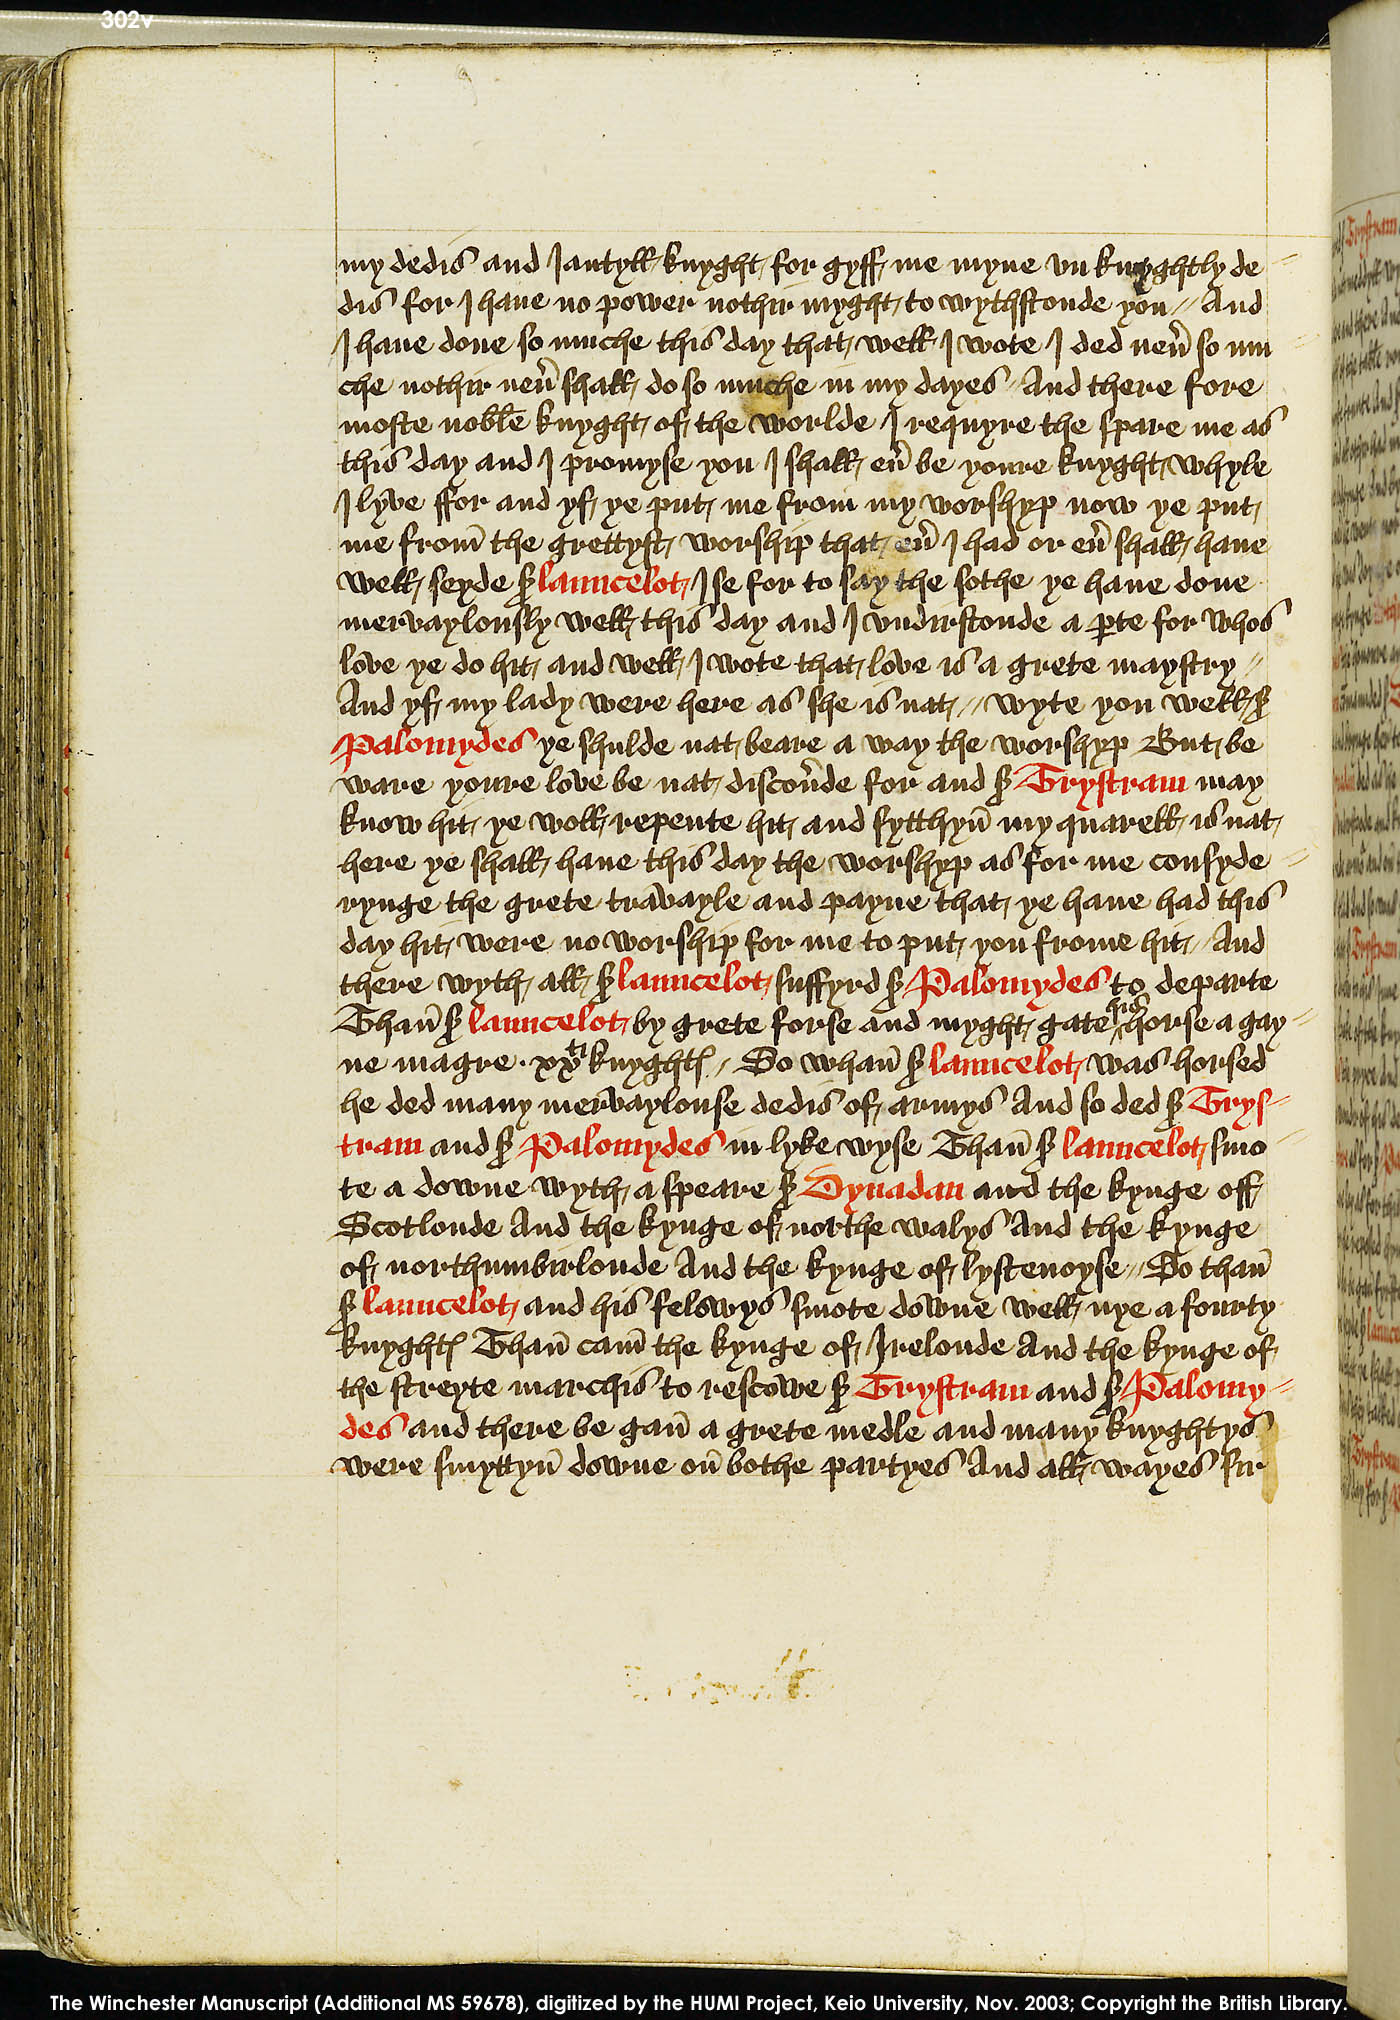 302v
my dedis and Jantyll knyght for gyff me myne vn knyghtly de
dis for I haue no power nothir myght to wythstonde you // And
I haue done so muche this day that well I wote I ded neũ so mu
che nothir neũ shall do so muche in my dayes And there fore
moste noble knyght of the worlde I requyre the spare me as
this day and I promyse you I shall eũ be youre knyght whyle
I lyve ffor and yf ye put me from my worshyp now ye put
me from̄ the grettyst worship that eũ I had or eũ shall haue
well seyde ẜ launcelot I se for to say the sothe ye haue done
mervaylously well this day and I vndirstonde a ꝑte for whos
love ye do hit and well I wote that love is a grete maystry //
And yf my lady were here as she is nat // wyte you well ẜ
Palomydes ye shulde nat beare a way the worshyp But be
ware youre love be nat discoũde for and ẜ Trystram may
know hit ye woll repente hit and sytthyn̄ my quarell is nat
here ye shall haue this day the worshyp as for me consyde
rynge the grete travayle and payne that ye haue had this
day hit were no worship for me to put you frome hit // And
there wyth all ẜ launcelot suffyrd ẜ Palomydes to departe
Than̄ ẜ launcelot by grete forse and myght gate his horse a gay
ne magre · xxti knyghtꝭ // So whan̄ ẜ launcelot was horsed
he ded many mervaylouse dedis of armys And so ded ẜ Trys
tram and ẜ Palomydes in lyke wyse Than̄ ẜ launcelot smo
te a downe wyth a speare ẜ Dynadan and the kynge off
Scotlonde And the kynge of northe walys And the kynge
of northumbirlonde And the kynge of lystenoyse // So than̄
ẜ launcelot and his felowys smote downe well nye a fourty
knyghtꝭ Than̄ cam̄ the kynge of Irelonde And the kynge of
the streyte marchis to rescowe ẜ Trystram and ẜ Palomy
des and there be gan̄ a grete medle and many knyghtys
were smyttyn̄ downe on̄ bothe partyes And all wayes sir
The Winchester Manuscript (Additional MS 59678), digitized by the HUMI Project, Keio University, Nov. 2003; Copyright the British Library.